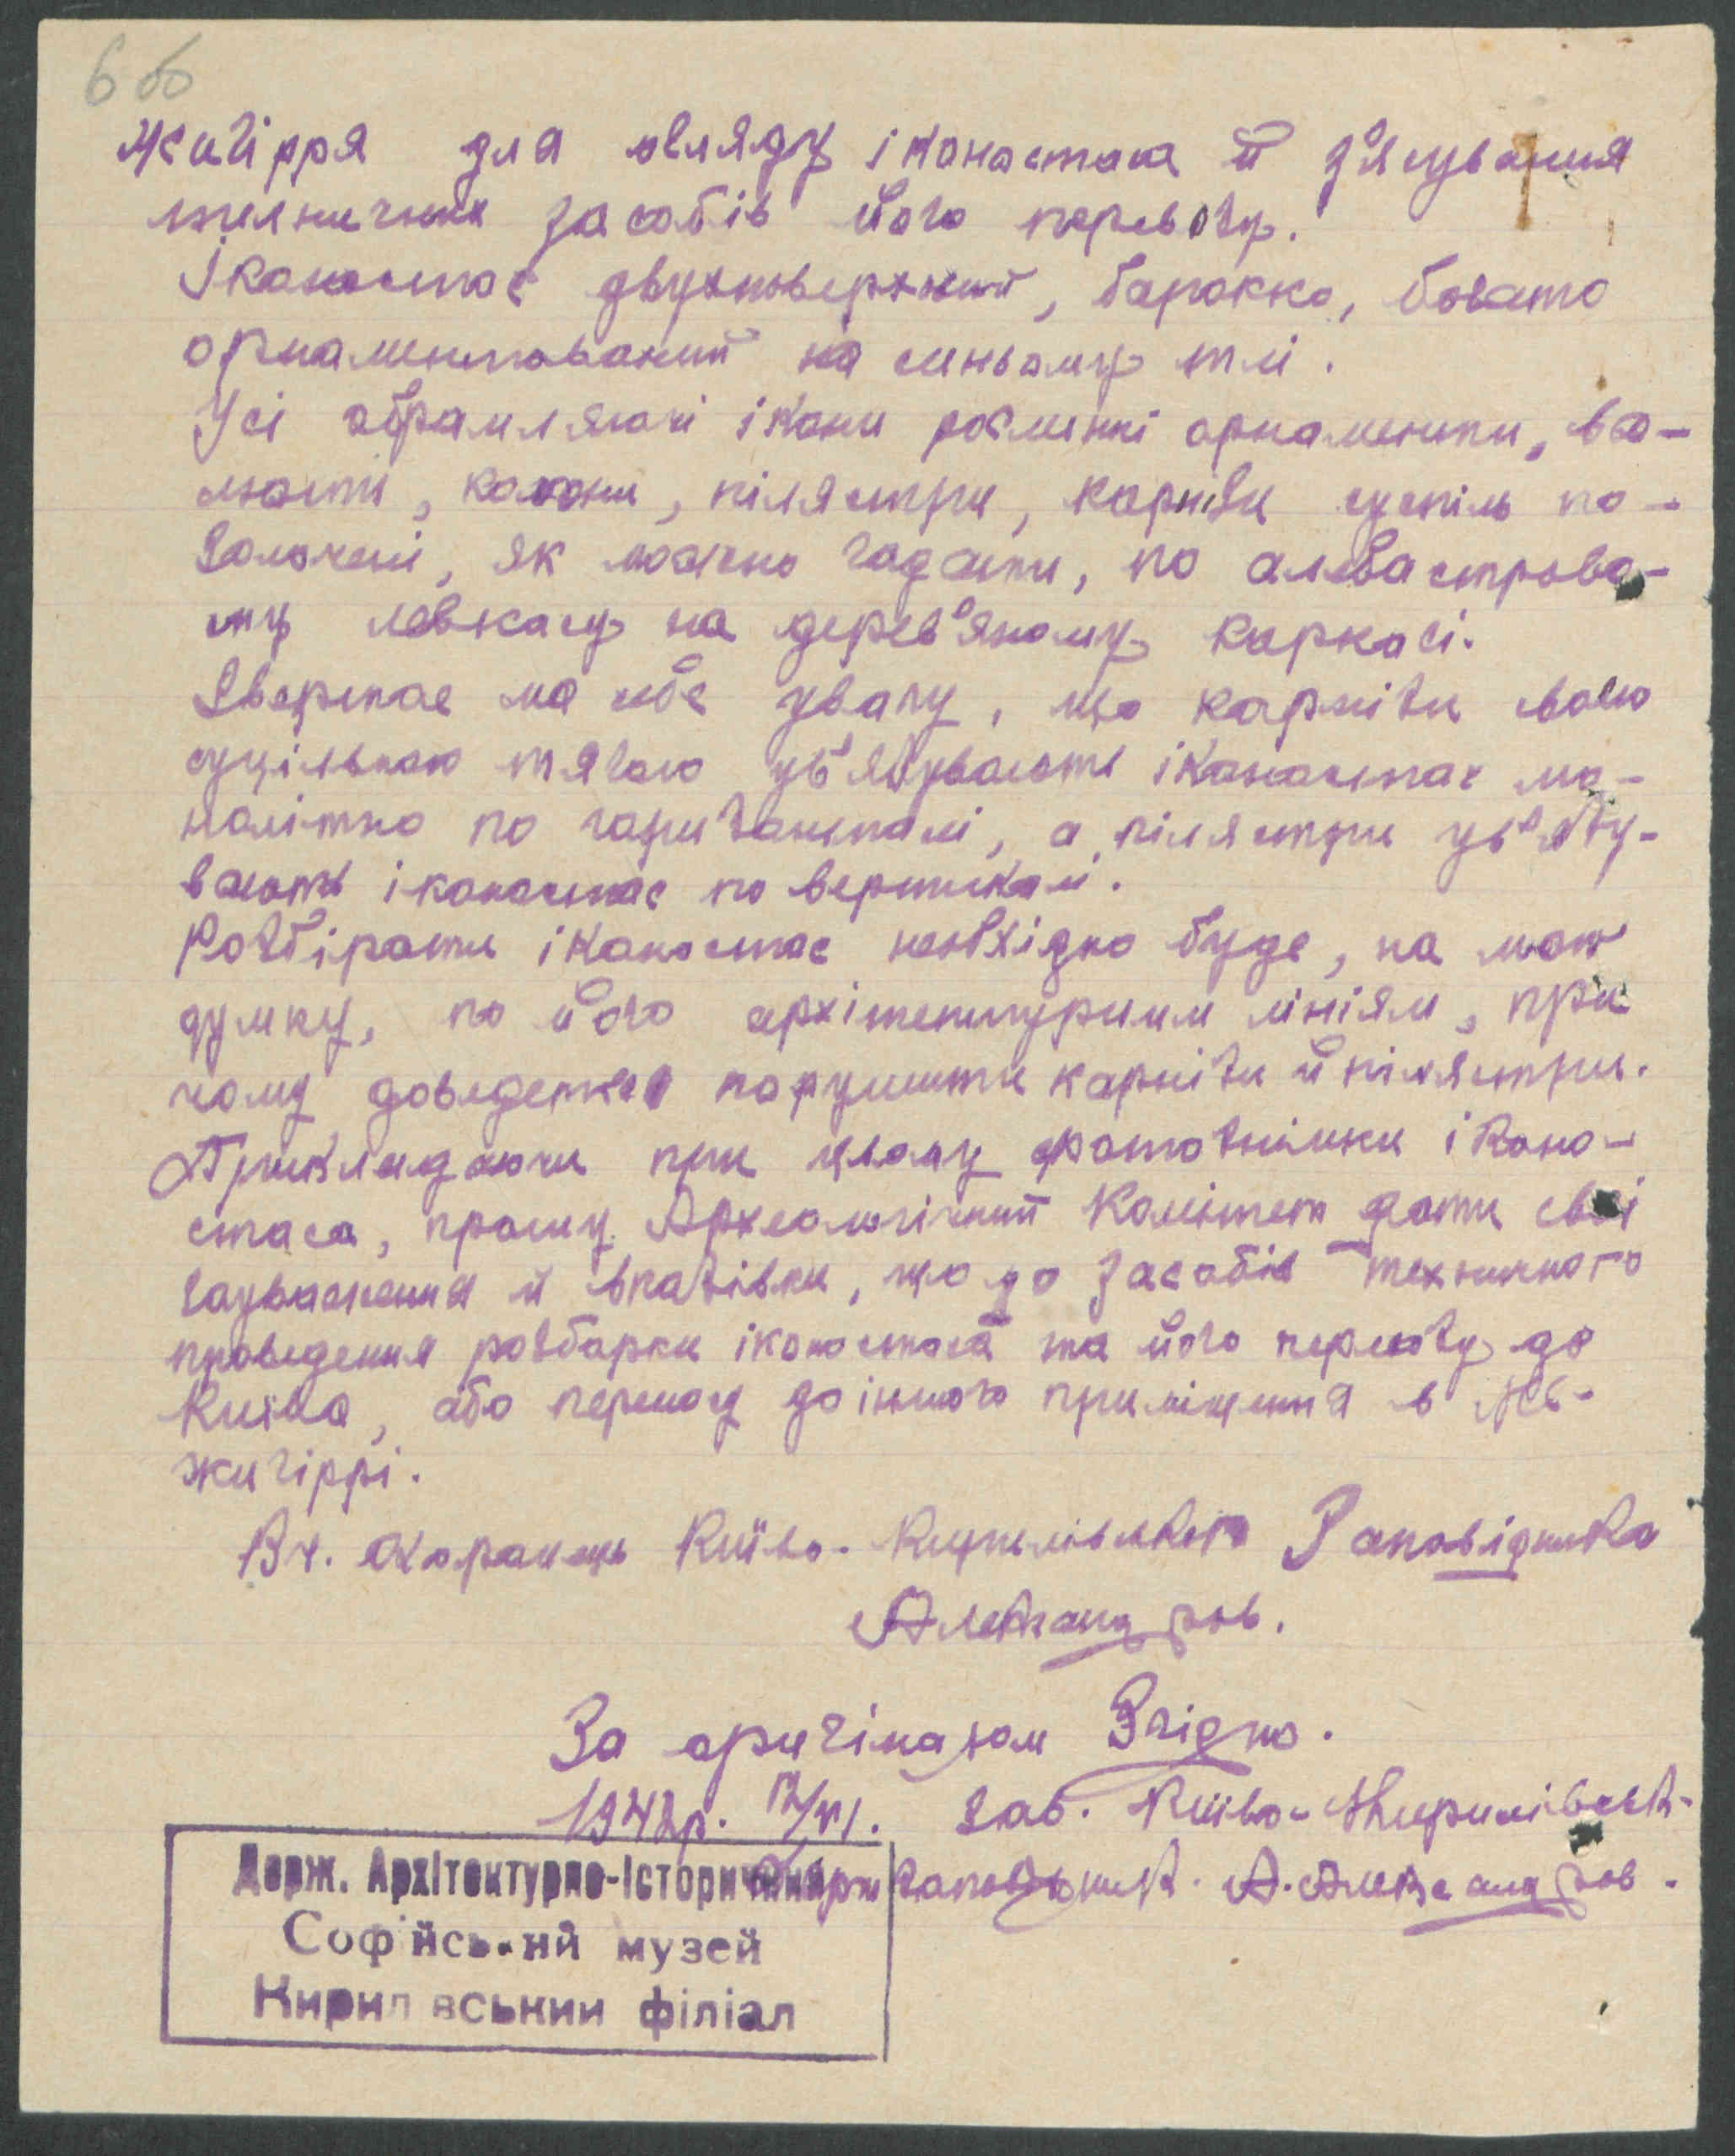 6 об
жигірря для огляду іконостаса й з'ясування
техничних засобів його перевозу.
Іконостас двухповерхний, барокко, богато
орнаментований на синьому тлі.
Усі обрамляючі ікони рослинні орнаменти, во-
люти, колони, пілястри, карнізи суспіль по-
золочені, як можно гадати, по алебастрово-
му левкасу на дерев'яному каркасі.
Звертає на себе увагу, що карнізи свою
суцільною тягою ув'язувають іконостас мо-
нолітно по гаризанталі, а пілястри ув'язу-
вають іконостас по вертикалі.
Розбірати іконостас необхідно буде, на мою
думку, по його архітектурним лініям, при
чому доведеться порушити карнізи й пілястри.
Прикладаючи при цьому фотознімки іконо-
стаса, прошу Археологічний Комітет дати свої
зауваження й вказівки, що до засобів техничного
проведення розборки іконостаса та його перевозу до
Києва, або переносу до іншого приміщення в Ме-
жигіррі.
Вч. Охоранець Київо-Кирилівського Заповідника
Александров.
За оригіналом Згідно.
1942р. /VI. Зав. Київо-Кирилівськ.
Держ Заповідник. А. Александров.
Держ. Архітектурно-Історичний
Софійський музей
Кирилівський філіал